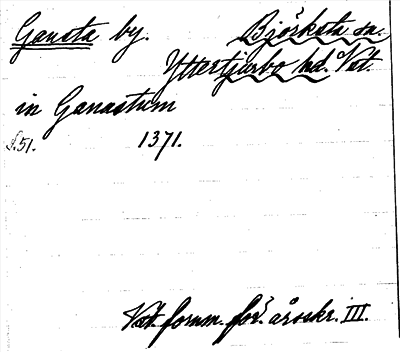 Gansta by. Björksta sn.
Yttertjurbo hd. Vst.
in Ganastum
s. 51. 1371.
Vst. fornm. för. årsskr. III.